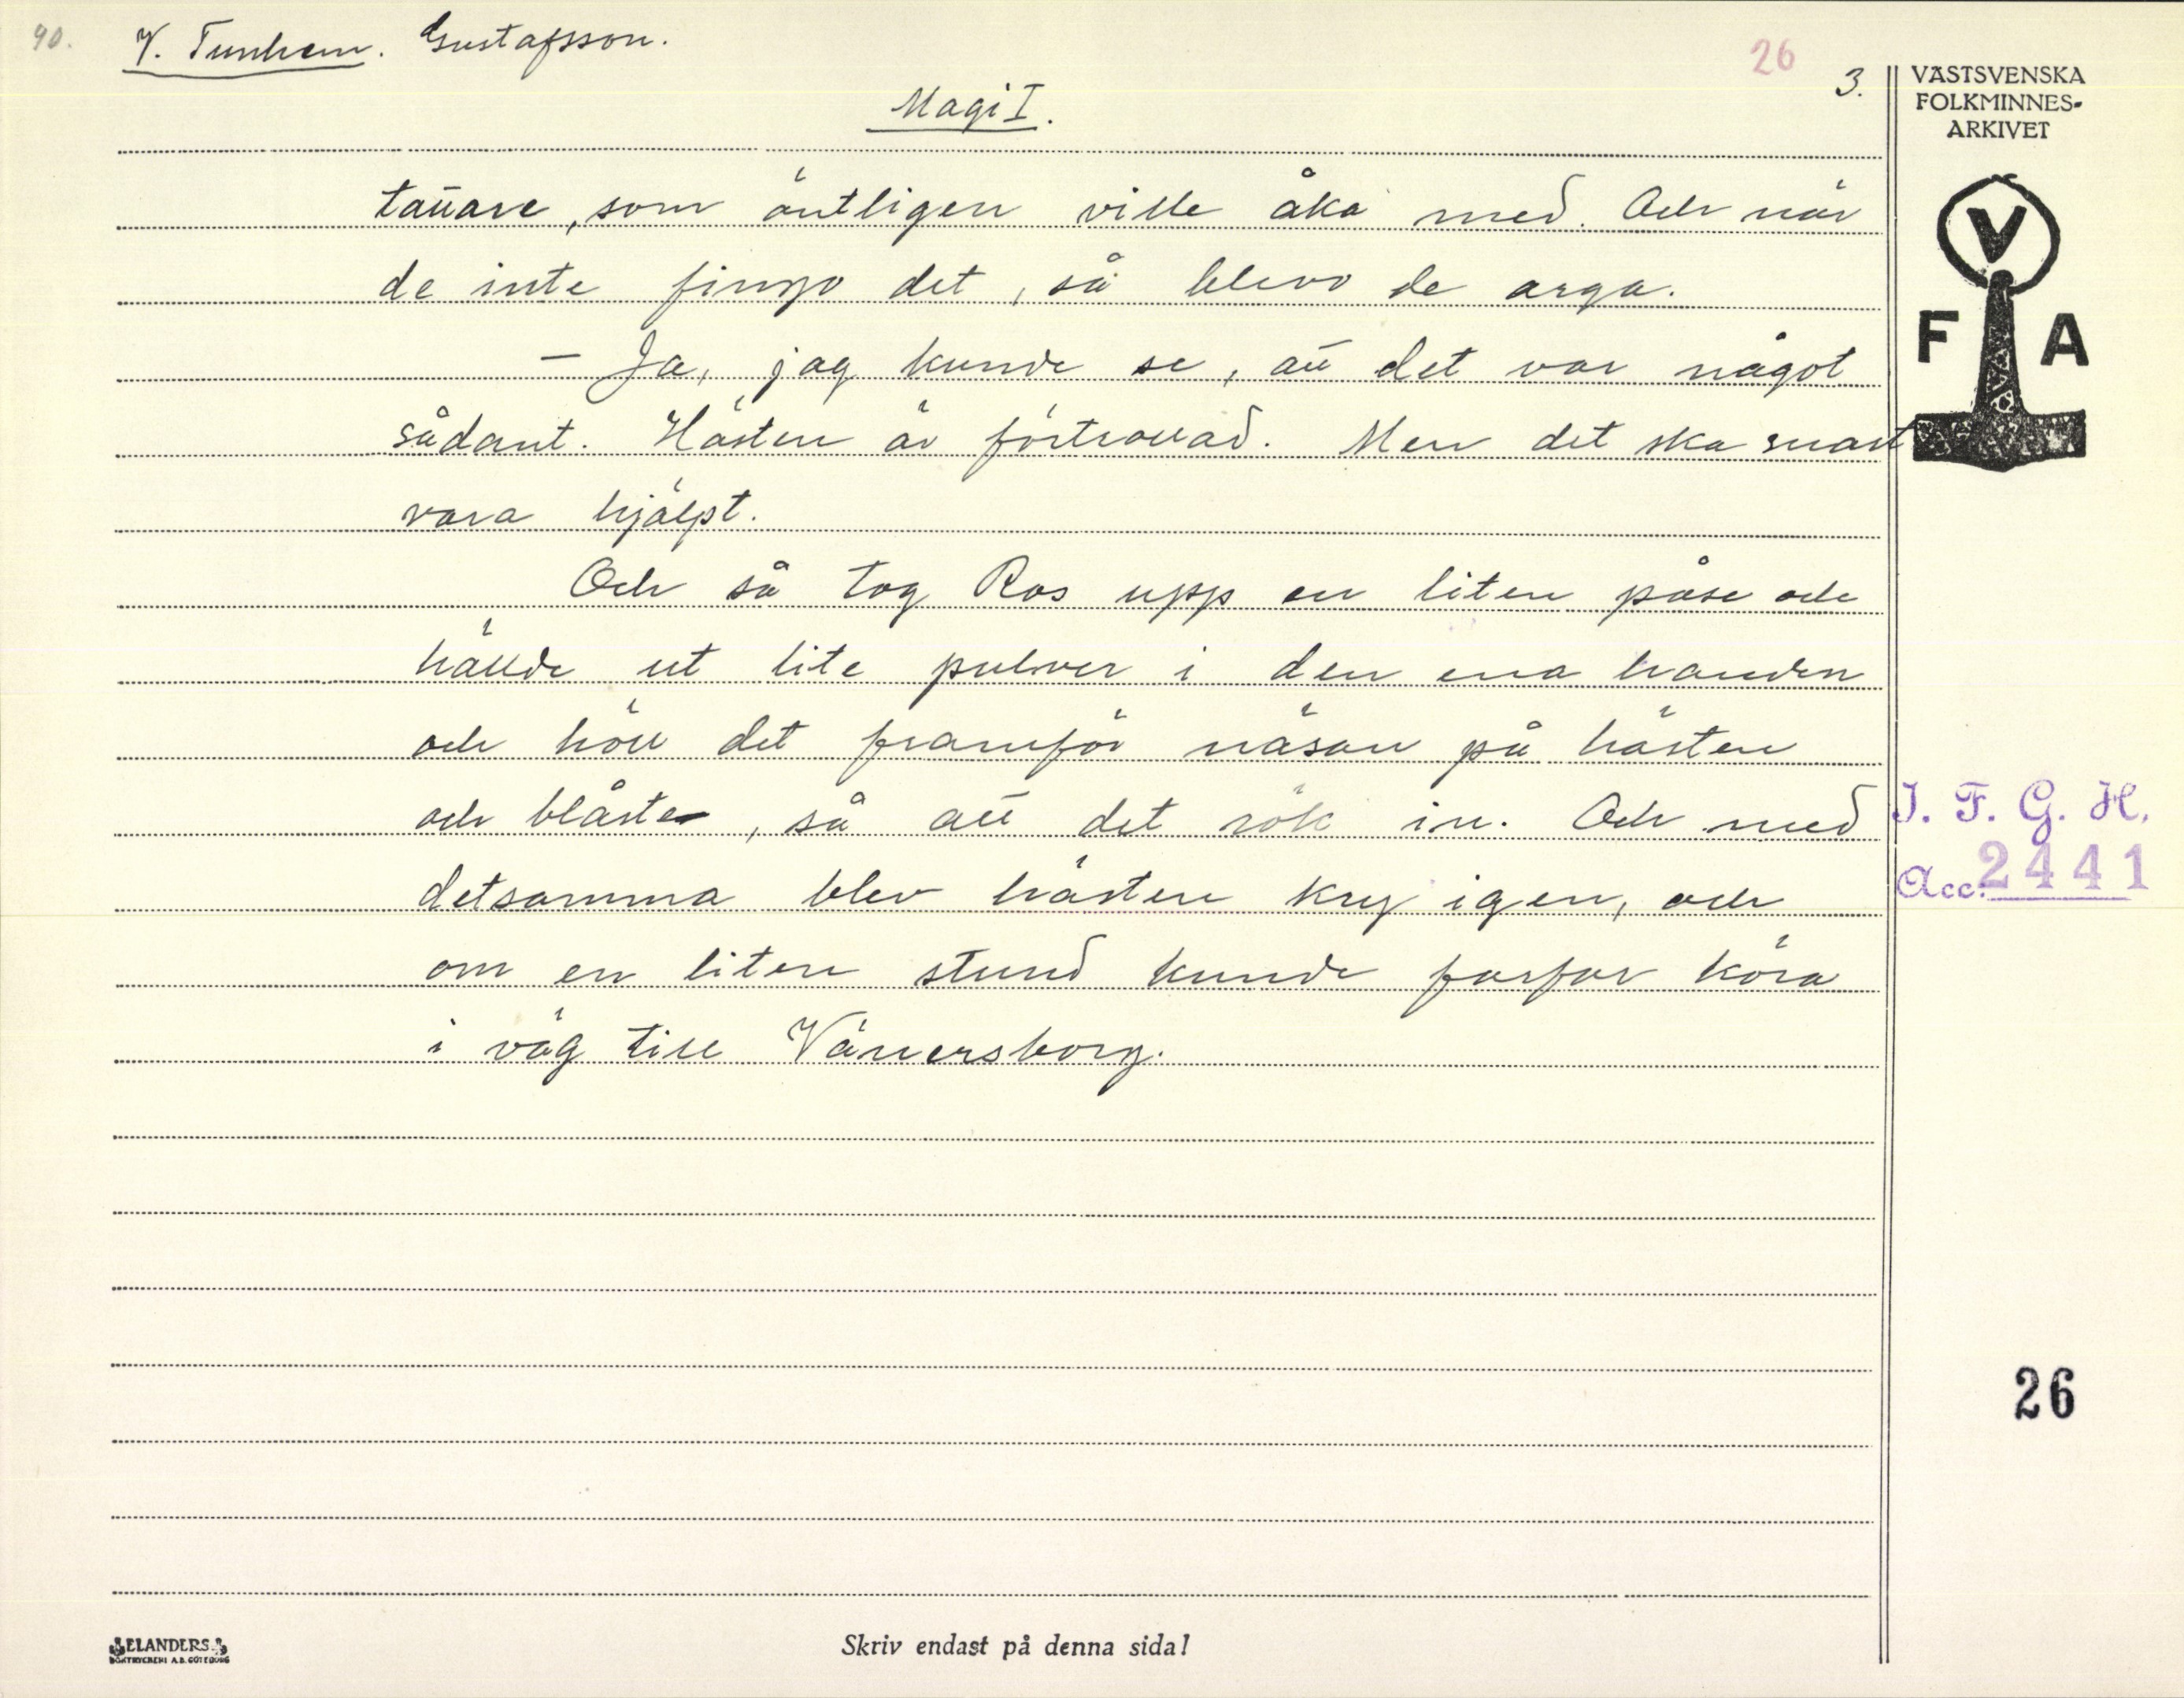 90.
V. Tunhem. Gustafsson.
26
3.
Magi I.
tattare, som äntligen ville åka med. Och när
de inte fingo det, så blevo de arga.
— Ja, jag kunde se, att det var något
sådant. Hästen är förtrollad. Men det ska snart
vara hjälpt.
Och så tog Ros upp en liten påse och
hällde ut lite pulver i den ena handen
och höll det framför näsan på hästen
och blåste, så att det rök in. Och med
detsamma blev hästen kry igen, och
om en liten stund kunde farfar köra
i väg till Vänersborg.
VÄSTSVENSKA
FOLKMINNES-
ARKIVET
V
F A
I. F. G. H.
Acc. 2441
26
ELANDERS
BOKTRYCKERI A.B. GÖTEBORG
Skriv endast på denna sida!